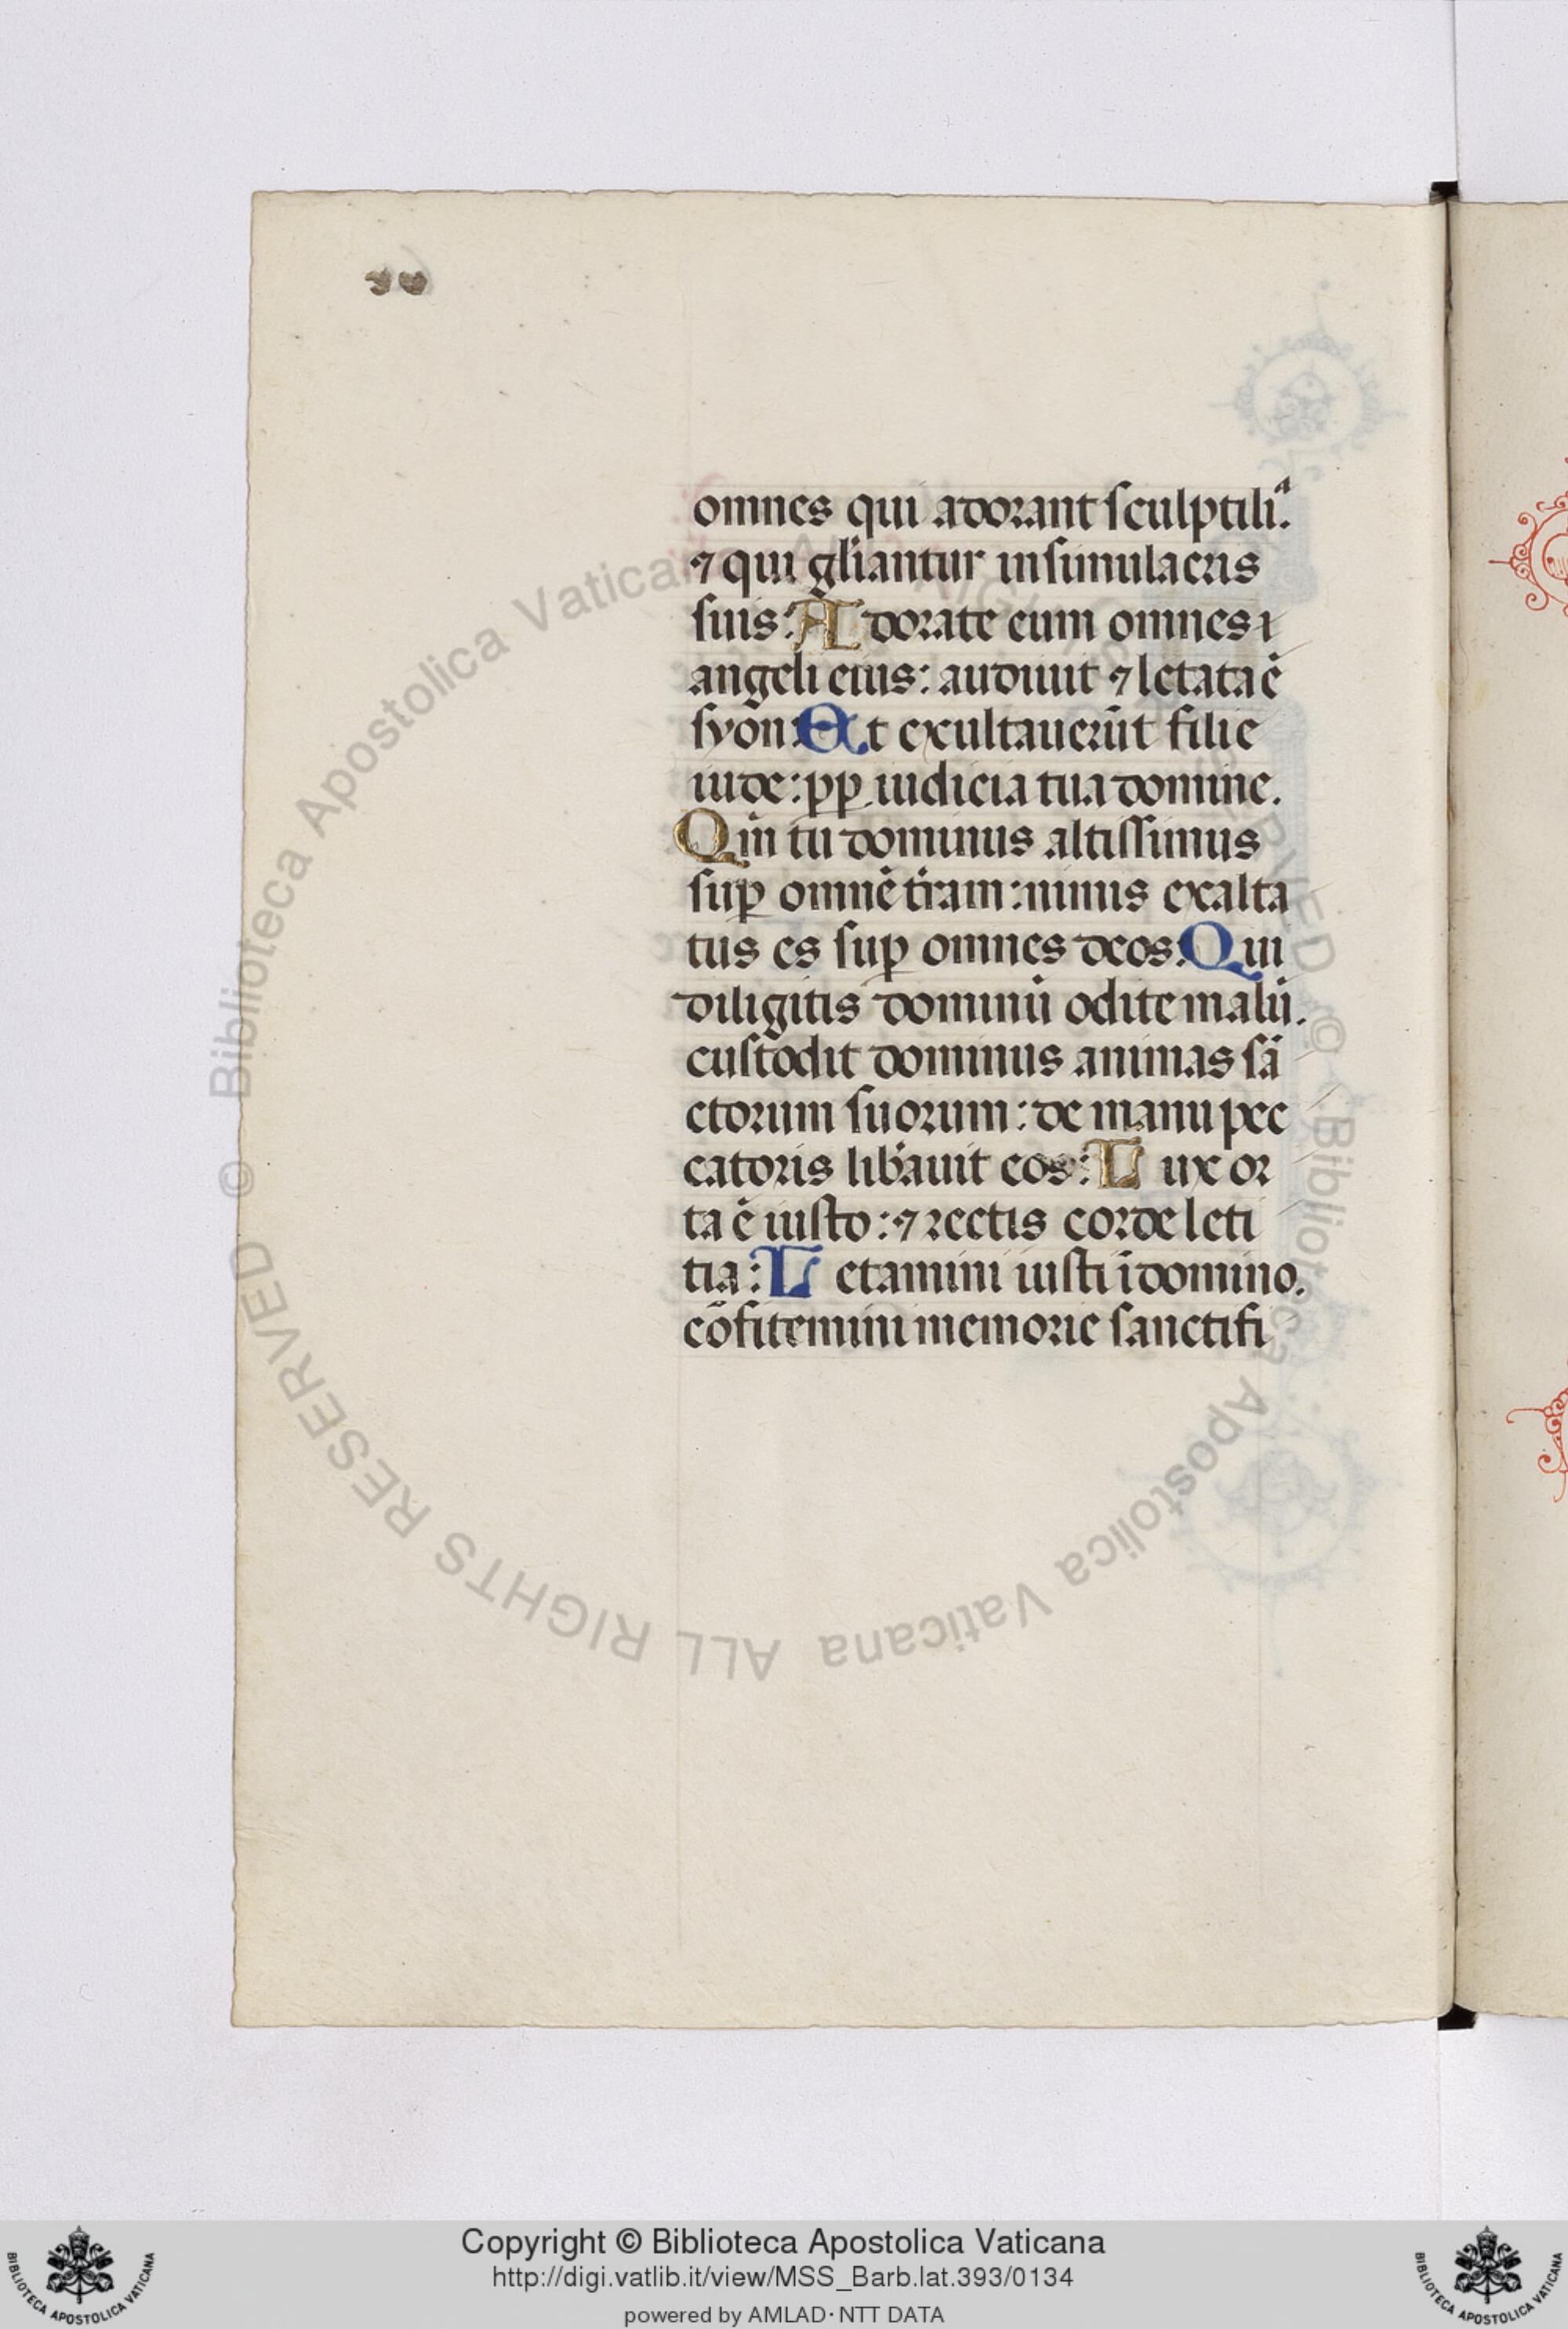 omnes qui adorant sculptiliᵃ.
⁊ qui gl̄iantur in simulacris
suis: Adorate eum omnes ı
angeli eius: audiuit ⁊ letata ē
syon: Et exultauerūt filie
iude: ꝓp iudicia tua domine.
Qm̄ tu dominus altissimus
suꝑ omnē tr̄am: nimis exalta
tus es suꝑ omnes deos. Qui
diligitis dominū odite malū.
custodit dominus animas sā
ctorum suorum: de manu pec
catoris lib̄auit eos: Lux or
ta ē iusto: ⁊ rectis corde leti
tia: Letamini iusti ī domino.
cōfitemini memorie sanctifi
© Biblioteca Apostolica Vaticana ALL RIGHTS RESERVED
© Biblioteca Apostolica Vaticana ALL RIGHTS RESERVED
Copyright © Biblioteca Apostolica Vaticana
http://digi.vatlib.it/view/MSS_Barb.lat.393/0134
powered by AMLAD · NTT DATA
BIBLIOTECA APOSTOLICA VATICANA
BIBLIOTECA APOSTOLICA VATICANA